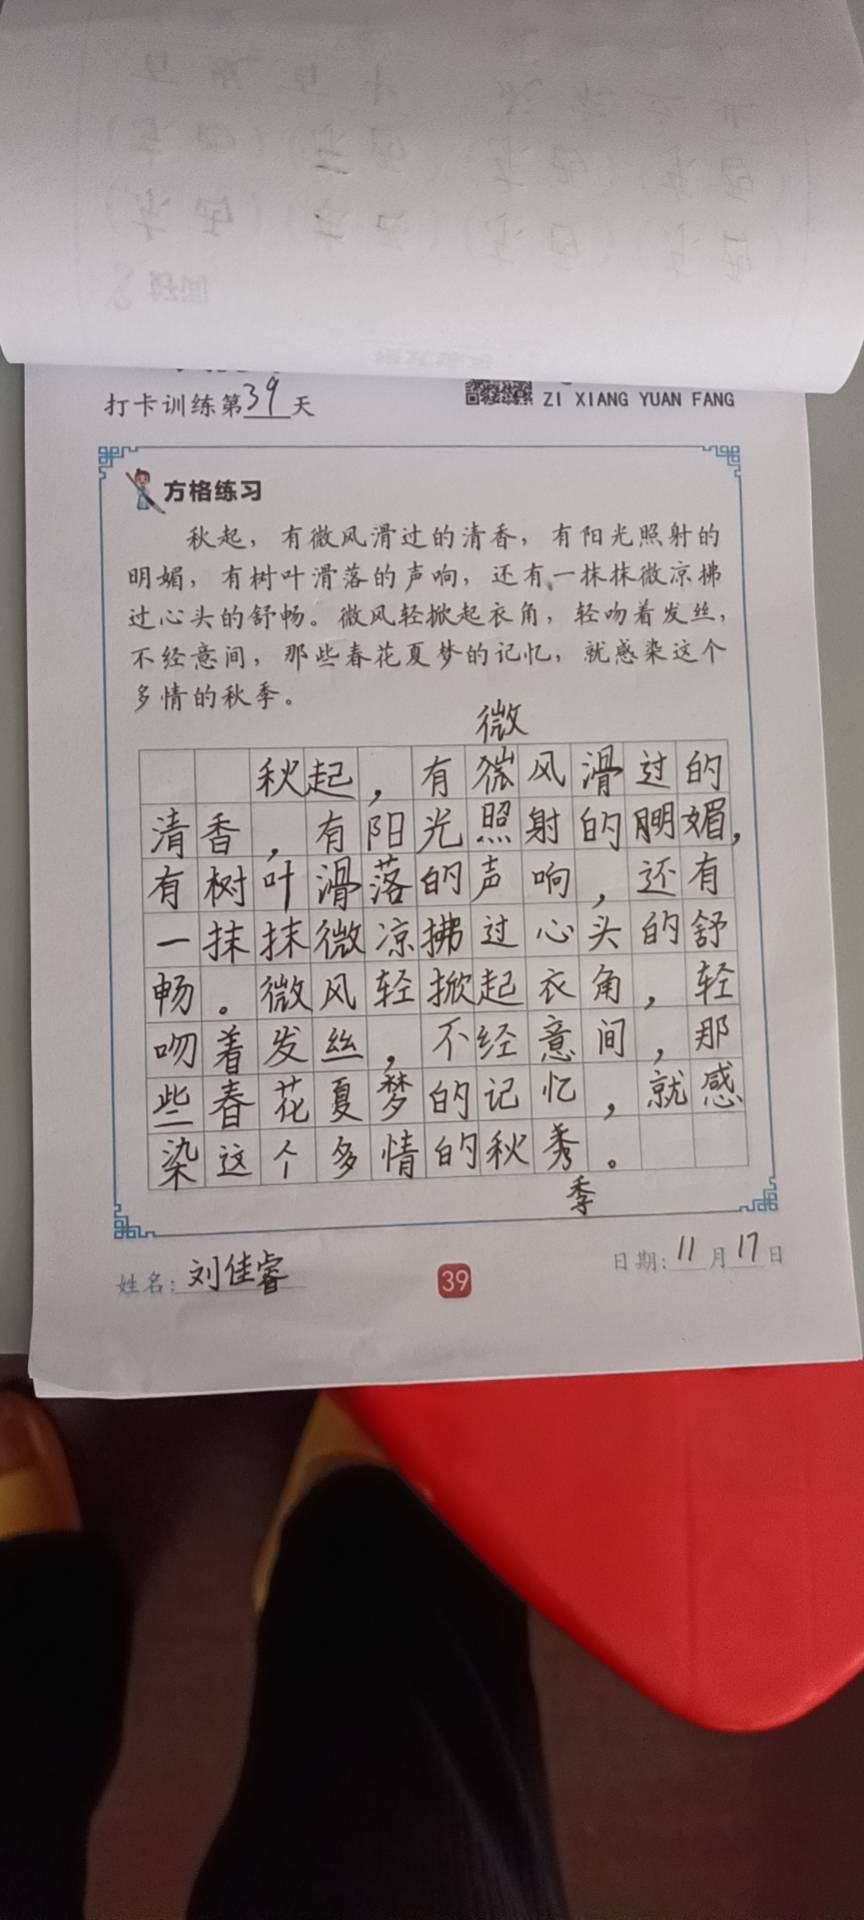 打卡训练第39天
ZI XIANG YUAN FANG
方格练习
秋起，有微风滑过的清香，有阳光照射的
明媚，有树叶滑落的声响，还有一抹抹微凉拂
过心头的舒畅。微风轻掀起衣角，轻吻着发丝，
不经意间，那些春花夏梦的记忆，就感染这个
多情的秋季。
微
秋起，有微风滑过的
清香，有阳光照射的明媚，
有树叶滑落的声响，还有
一抹抹微凉拂过心头的舒
畅。微风轻掀起衣角，轻
吻着发丝，不经意间，那
些春花夏梦的记忆，就感
染这个多情的秋秀。
季
姓名：刘佳睿
39
日期：11月17日